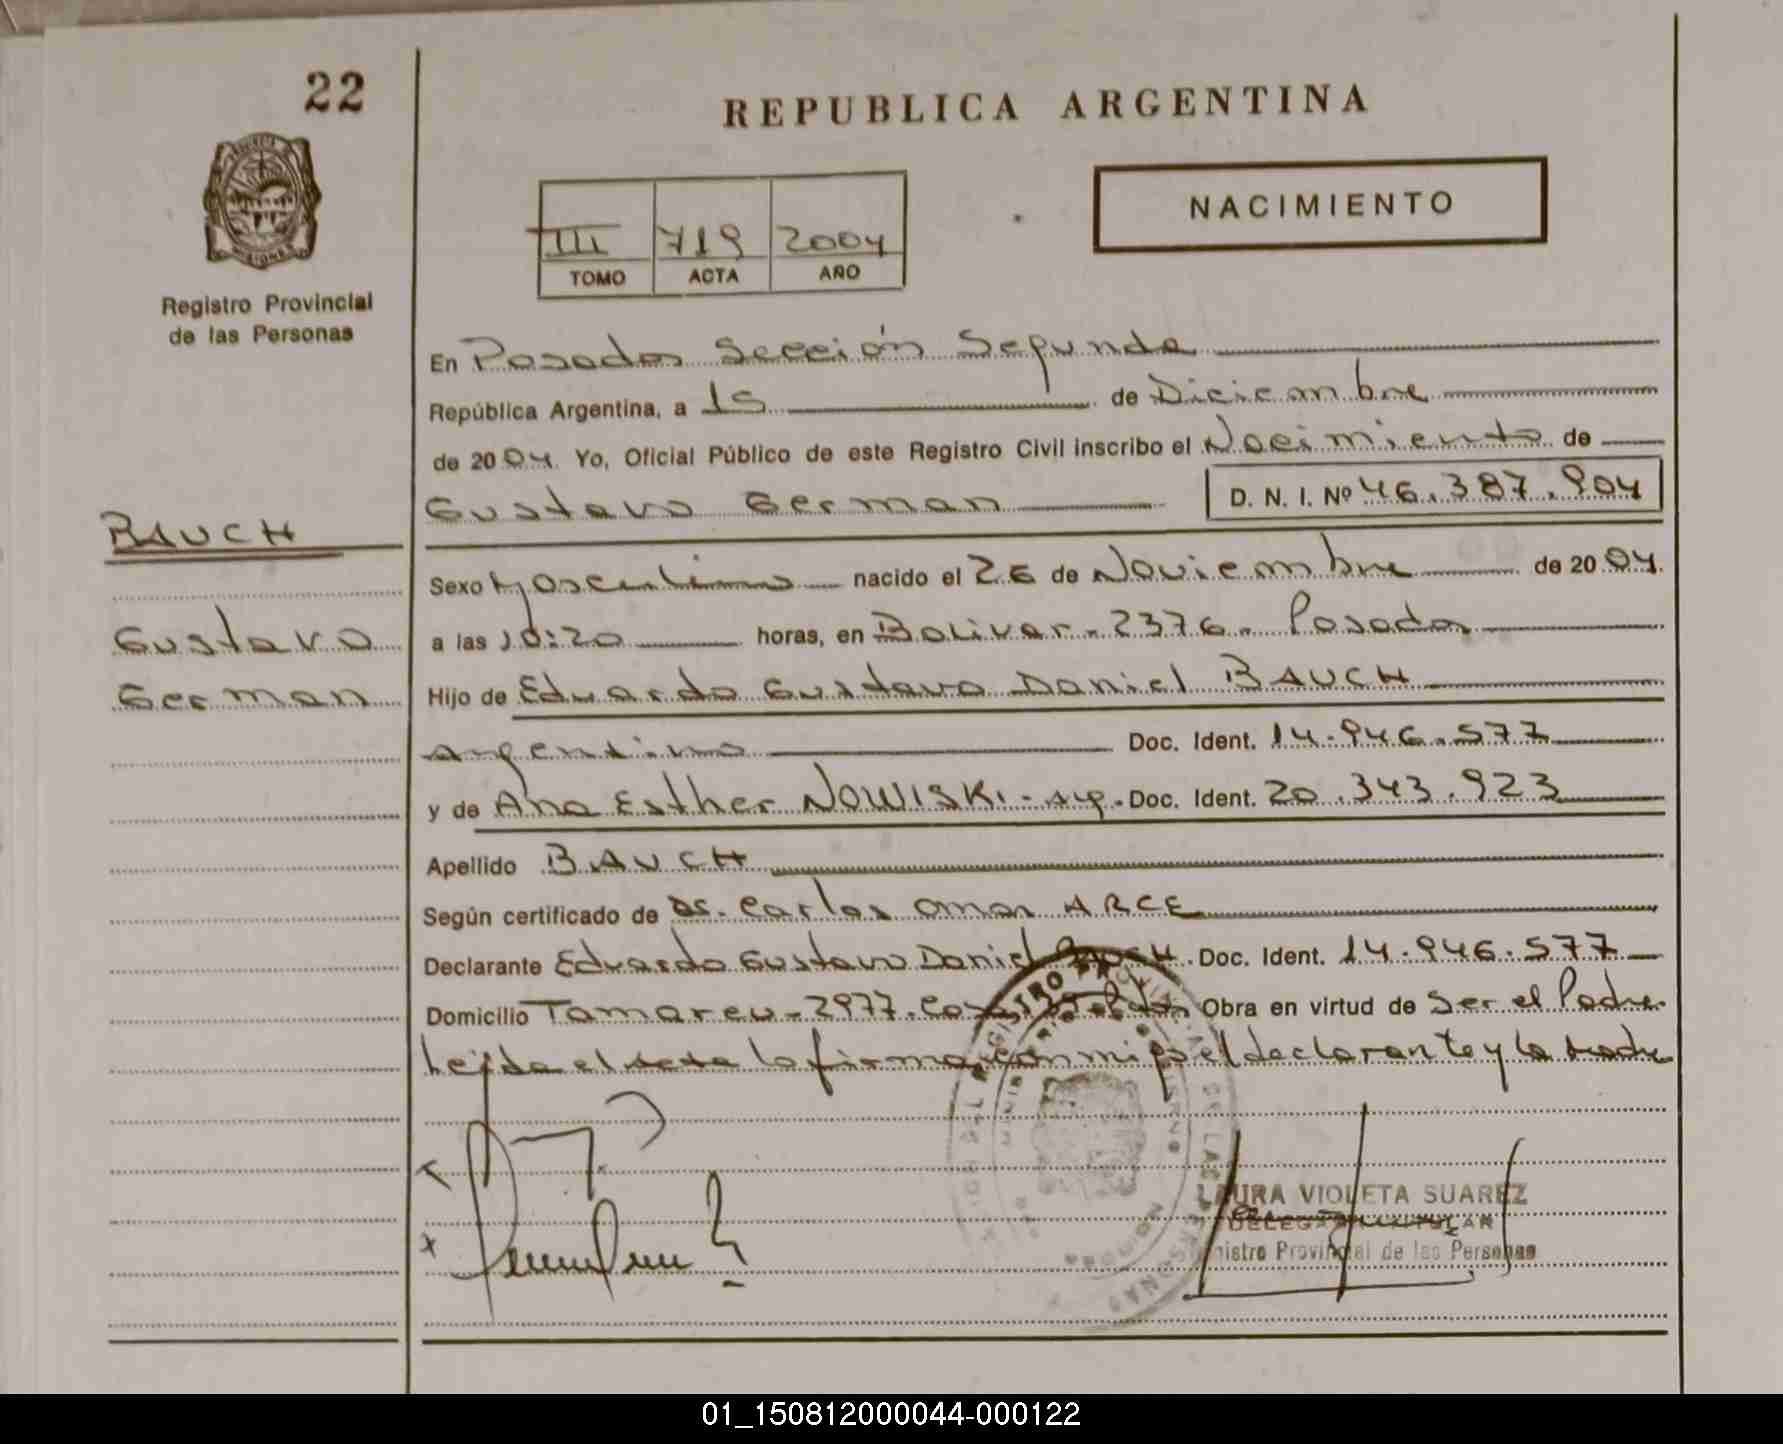 22
REPUBLICA ARGENTINA
NACIMIENTO
III 719 2004
TOMO ACTA AÑO
Registro Provincial
de las Personas
En Posadas Sección Segunda
República Argentina, a 15 de Diciembre
de 2004. Yo, Oficial Público de este Registro Civil inscribo el Nacimiento de
Gustavo German D. N. I. Nº 46.387.904
BAUCH
Gustavo
German
Sexo Masculino nacido el 26 de Noviembre de 2004.
a las 10:20 horas, en Bolivar - 2376 - Posadas
Hijo de Eduardo Gustavo Daniel BAUCH
argentino Doc. Ident. 14.946.577
y de Ana Esther NOWISKI - arg. Doc. Ident. 20.343.923
Apellido BAUCH
Según certificado de Dr. Carlos Omar ARCE
Declarante Eduardo Gustavo Daniel BAUCH. Doc. Ident. 14.946.577
Domicilio Tamareu - 2977. Obra en virtud de Ser el Padre.
Leída el acta la firma conmigo el declarante y la madre
LAURA VIOLETA SUAREZ
DELEGADA TITULAR
Registro Provincial de las Personas
01_150812000044-000122